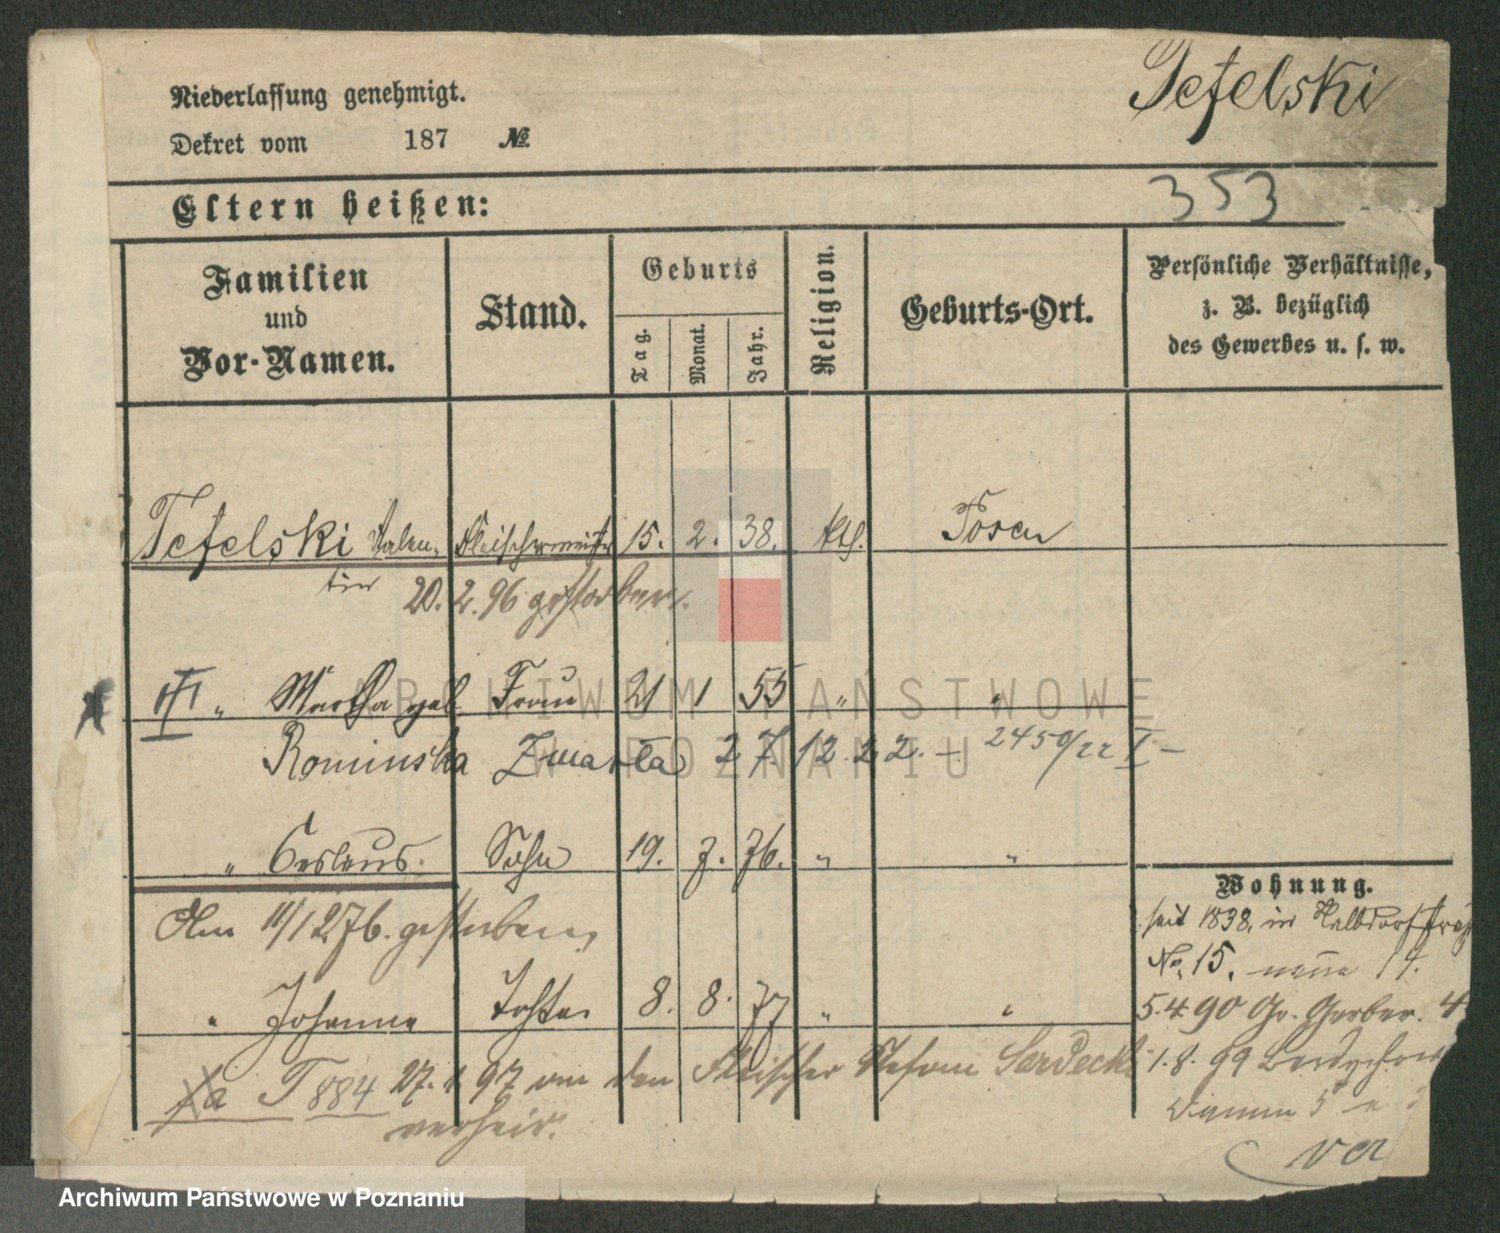 Tefelski
Niederlassung genehmigt.
Dekret vom 187 №
353
Eltern heißen:
Familien und Vor-Namen.
Stand.
Geburts
Tag.
Monat.
Jahr.
Religion.
Geburts-Ort.
Persönliche Verhältnisse,
z. B. bezüglich
des Gewerbes u. s. w.
Tefelski Valen- Fleischermeister 15. 2. 38. kth. Posen
tin 20. 2. 96 gestorben.
" Martha geb. Frau 21 1 55 " "
Rominska Zmarła 27. 12. 22. – 2450/22 I –
" Ceslaus. Sohn 19. 7. 76. " "
Am 11/12 76. gestorben
" Johanna Tochter 8. 8. 77 " "
T 884 27. 1 97 an den Fleischer Stefan
verheir.
Wohnung.
seit 1838. in Halbdorfstraße
No. 15. neue 14.
5.4.90 Gr. Gerber. 4
1.8.99
Damm 5
ARCHIWUM PAŃSTWOWE
W POZNANIU
Archiwum Państwowe w Poznaniu